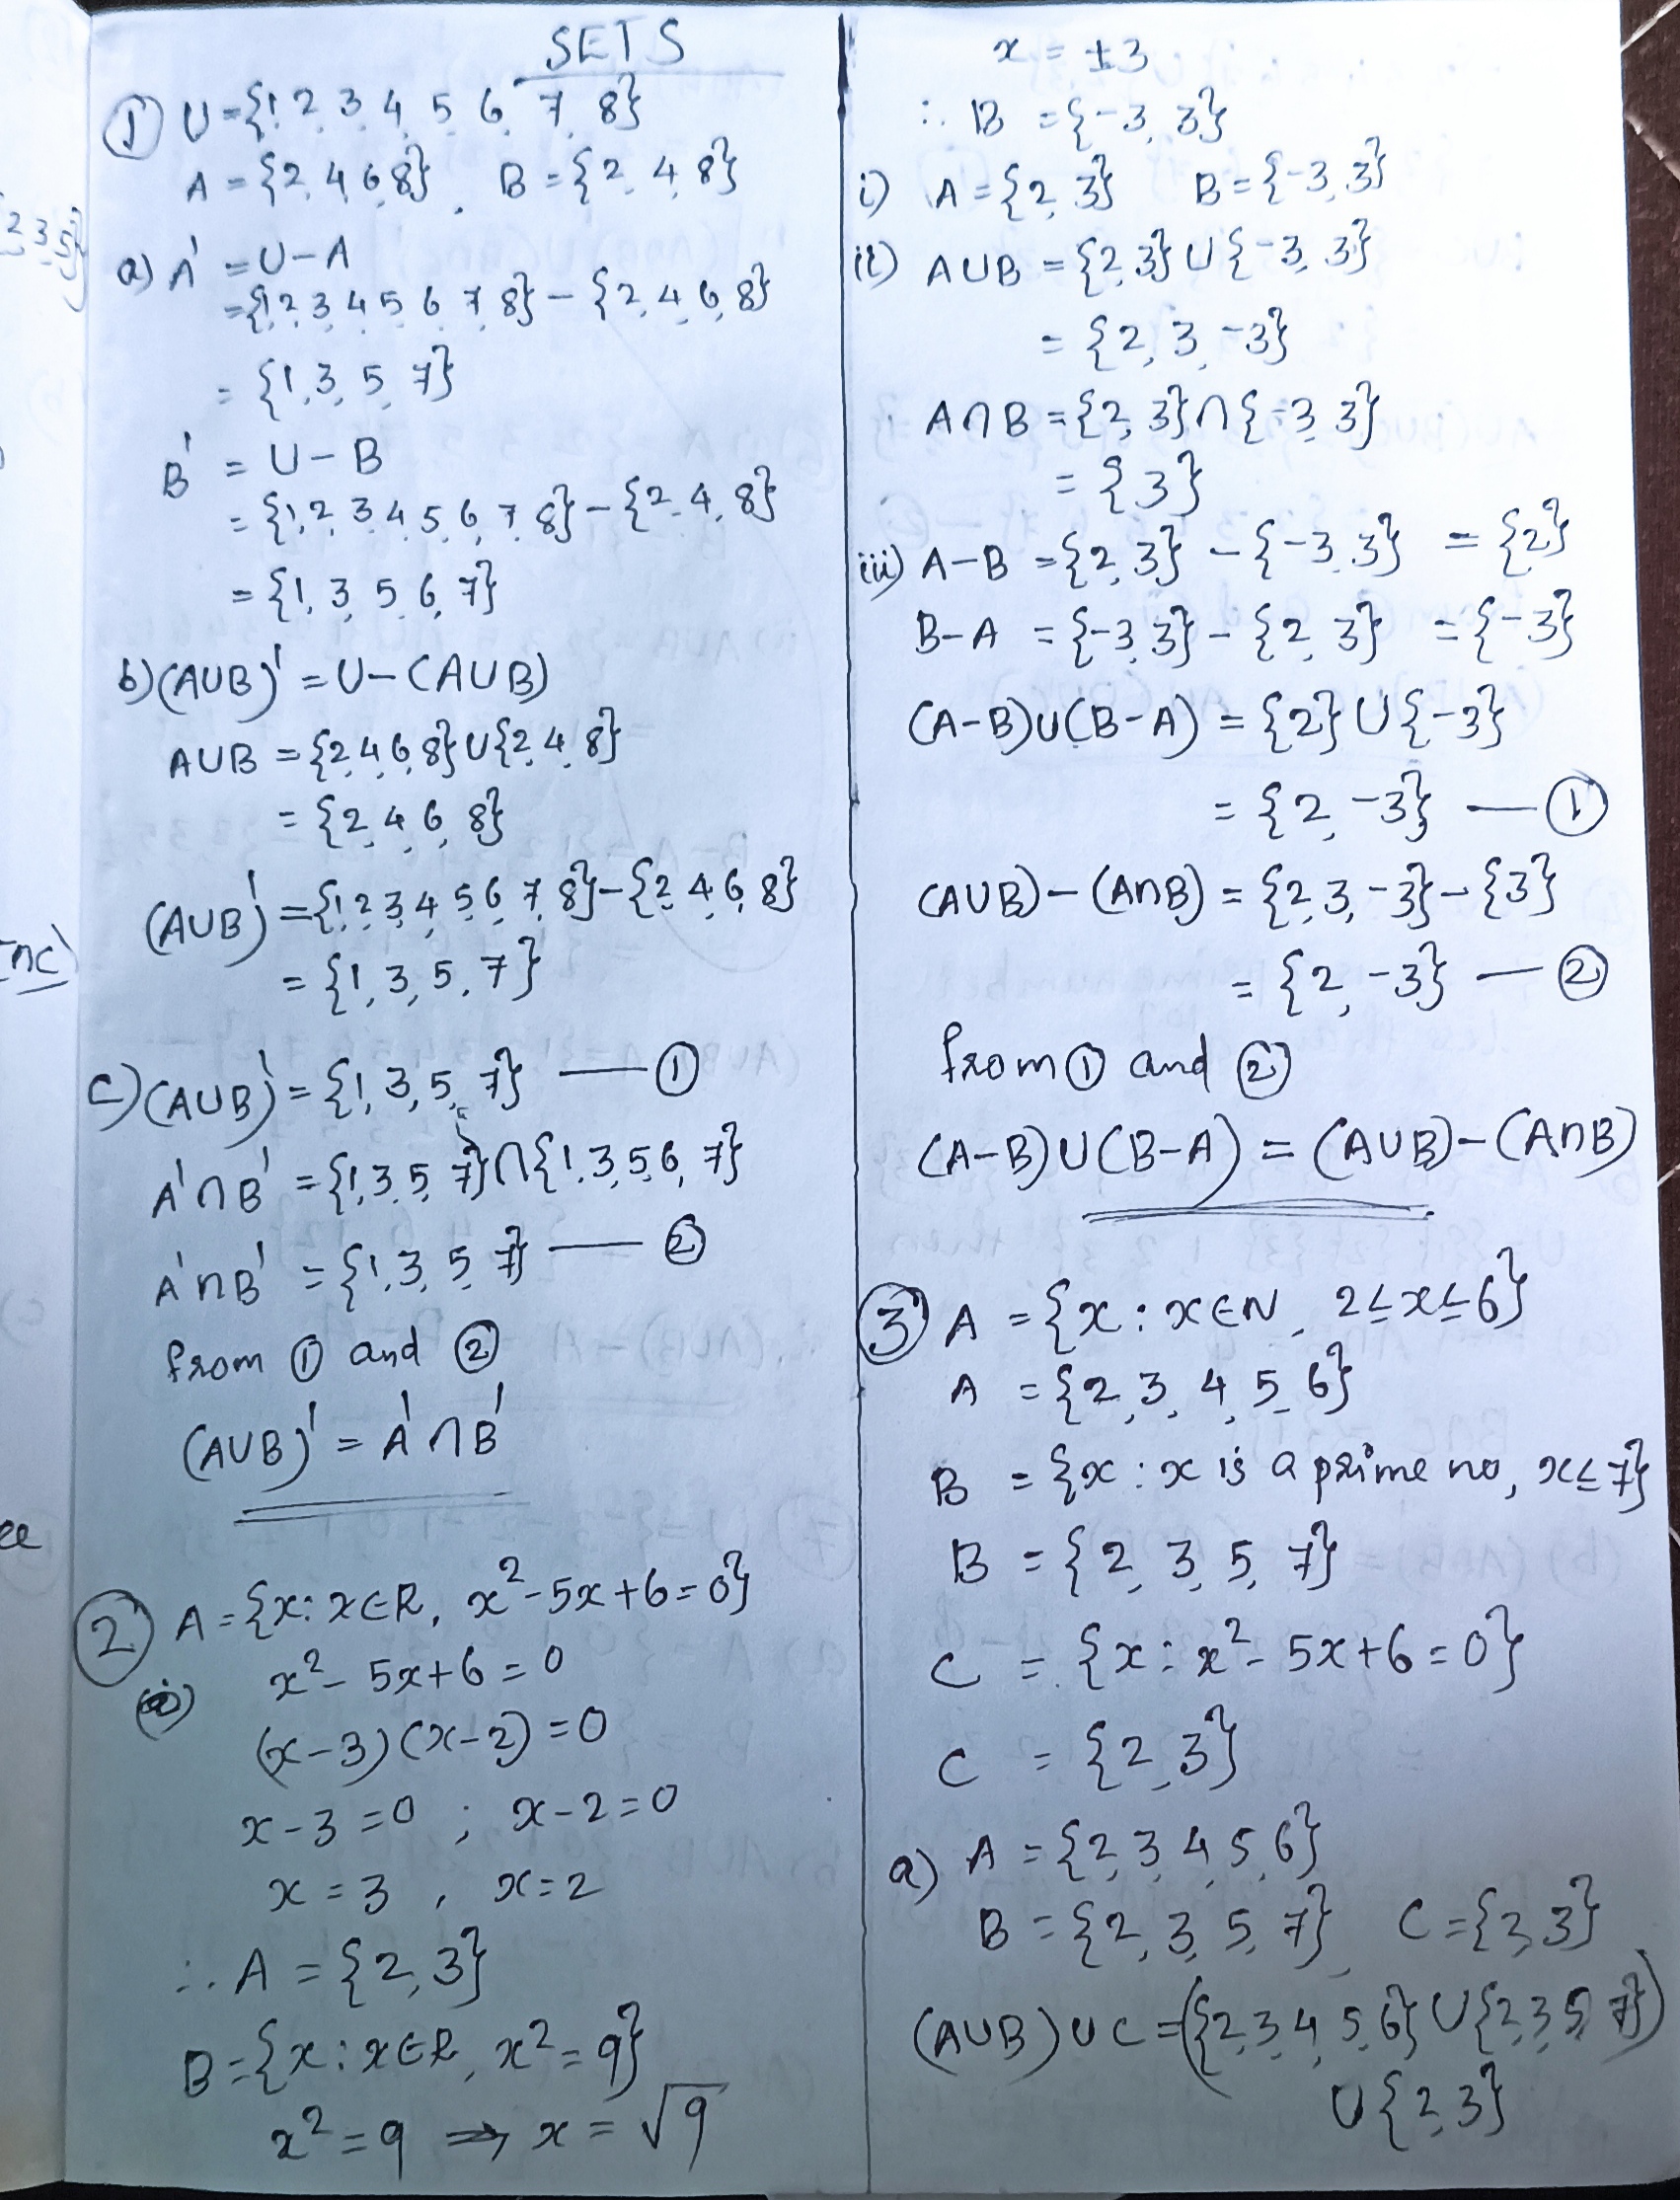 SETS
① U={1,2,3,4,5,6,7,8}
A={2,4,6,8}, B={2,4,8}
a) A' = U-A
={1,2,3,4,5,6,7,8}-{2,4,6,8}
= {1,3,5,7}
B' = U-B
= {1,2,3,4,5,6,7,8}-{2,4,8}
= {1,3,5,6,7}
b) (A∪B)' = U-(A∪B)
A∪B = {2,4,6,8}∪{2,4,8}
= {2,4,6,8}
(A∪B)' = {1,2,3,4,5,6,7,8}-{2,4,6,8}
= {1,3,5,7}
c) (A∪B)' = {1,3,5,7} — ①
A'∩B' = {1,3,5,7}∩{1,3,5,6,7}
A'∩B' = {1,3,5,7} — ②
from ① and ②
(A∪B)' = A'∩B'
② A={x:x∈R, x²-5x+6=0}
(i) x²-5x+6=0
(x-3)(x-2)=0
x-3=0 ; x-2=0
x=3, x=2
∴ A = {2,3}
B={x:x∈R, x²=9}
x²=9 ⇒ x=√9
x = ±3
∴ B = {-3,3}
i) A={2,3} B={-3,3}
ii) A∪B = {2,3}∪{-3,3}
= {2,3,-3}
A∩B = {2,3}∩{-3,3}
= {3}
iii) A-B = {2,3}-{-3,3} = {2}
B-A = {-3,3}-{2,3} = {-3}
(A-B)∪(B-A) = {2}∪{-3}
= {2,-3} — ①
(A∪B)-(A∩B) = {2,3,-3}-{3}
= {2,-3} — ②
from ① and ②
(A-B)∪(B-A) = (A∪B)-(A∩B)
③ A = {x:x∈N, 2≤x≤6}
A = {2,3,4,5,6}
B = {x:x is a prime no, x≤7}
B = {2,3,5,7}
C = {x:x²-5x+6=0}
C = {2,3}
a) A = {2,3,4,5,6}
B = {2,3,5,7}, C={2,3}
(A∪B)∪C=({2,3,4,5,6}∪{2,3,5,7})
∪{2,3}